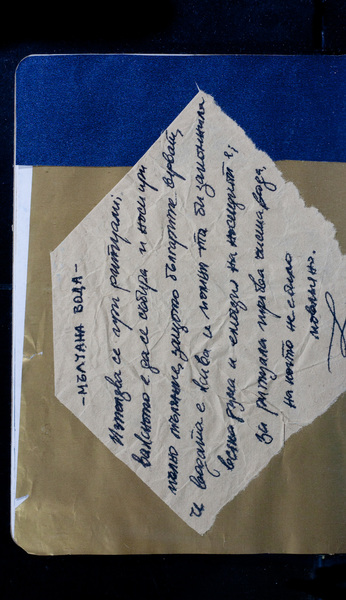 -МЪЛЧАНА ВОДА-
Използва се при ритуали;
важното е да се събира и носи при
пълно мълчание, защото българите вярват,
че водата е жива и помни та би запомнила
всяка дума и емоция на носещите я;
За ритуала трябва чиста вода,
на която не само
мовлино.